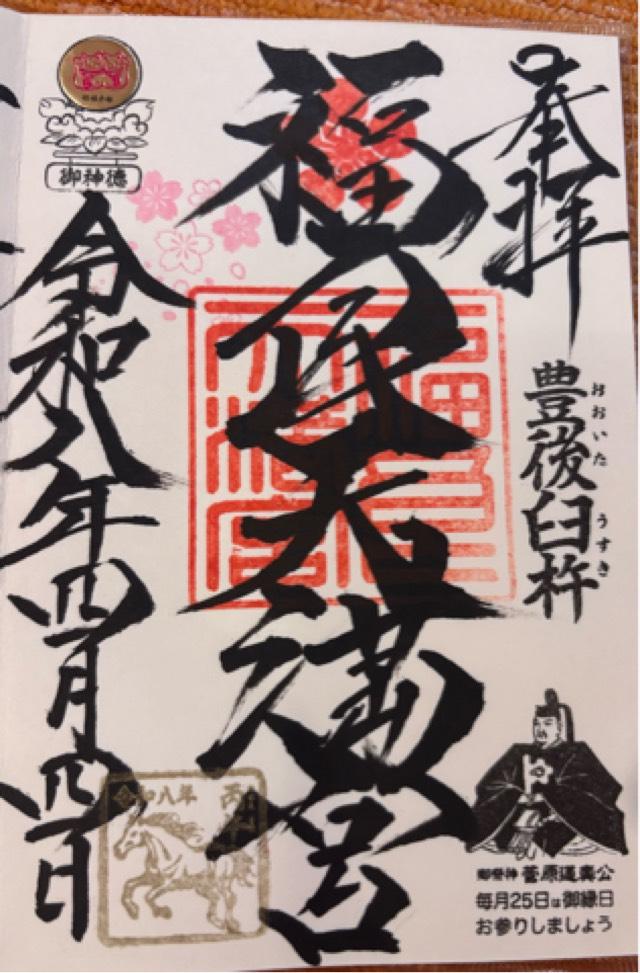 奉拝
豊後臼杵
おおいた
うすき
福良天満宮
御神徳
令和八年四月四日
令和八年
丙午
御祭神 菅原道真公
毎月25日は御縁日
お参りしましょう